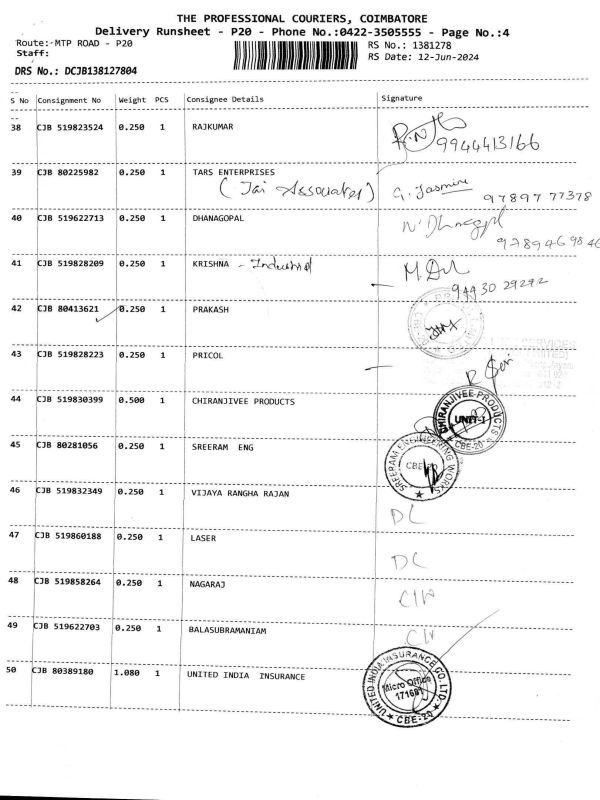 THE PROFESSIONAL COURIERS, COIMBATORE
Delivery Runsheet - P20 - Phone No.:0422-3505555 - Page No.:4
Route:-MTP ROAD - P20 RS No.: 1381278
Staff: RS Date: 12-Jun-2024
DRS No.: DCJB138127804
S No Consignment No Weight PCS Consignee Details Signature
38 CJB 519823524 0.250 1 RAJKUMAR
9944413166
39 CJB 80225982 0.250 1 TARS ENTERPRISES
(Jai Associates) G. Jasmine 97897 77378
40 CJB 519622713 0.250 1 DHANAGOPAL
9789469846
41 CJB 519828209 0.250 1 KRISHNA - Industrial
94430 29272
42 CJB 80413621 0.250 1 PRAKASH
43 CJB 519828223 0.250 1 PRICOL
44 CJB 519830399 0.500 1 CHIRANJIVEE PRODUCTS
CHIRANJIVEE PRODUCTS UNIT-I CBE-20
45 CJB 80281056 0.250 1 SREERAM ENG
SREERAM ENGINEERING WORKS CBE-20
46 CJB 519832349 0.250 1 VIJAYA RANGHA RAJAN DL
47 CJB 519860188 0.250 1 LASER DL
48 CJB 519858264 0.250 1 NAGARAJ
49 CJB 519622703 0.250 1 BALASUBRAMANIAM
50 CJB 80389180 1.080 1 UNITED INDIA INSURANCE
UNITED INDIA INSURANCE CO. LTD. Micro Office CBE-20